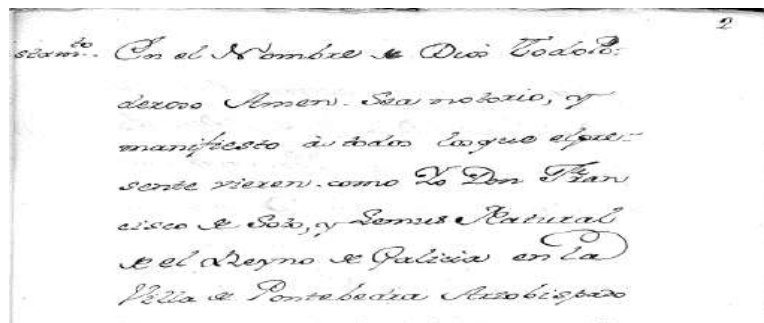 2
stam.to En el Nombre de Dios Todopo=
deroso Amen. Sea notorio, y
manifiesto à todos los que el pre=
sente vieren como Yo Don Fran
cisco de Soto, y Lemus Natural
de el Reyno de Galicia en la
Villa de Pontebedra Arzobispado